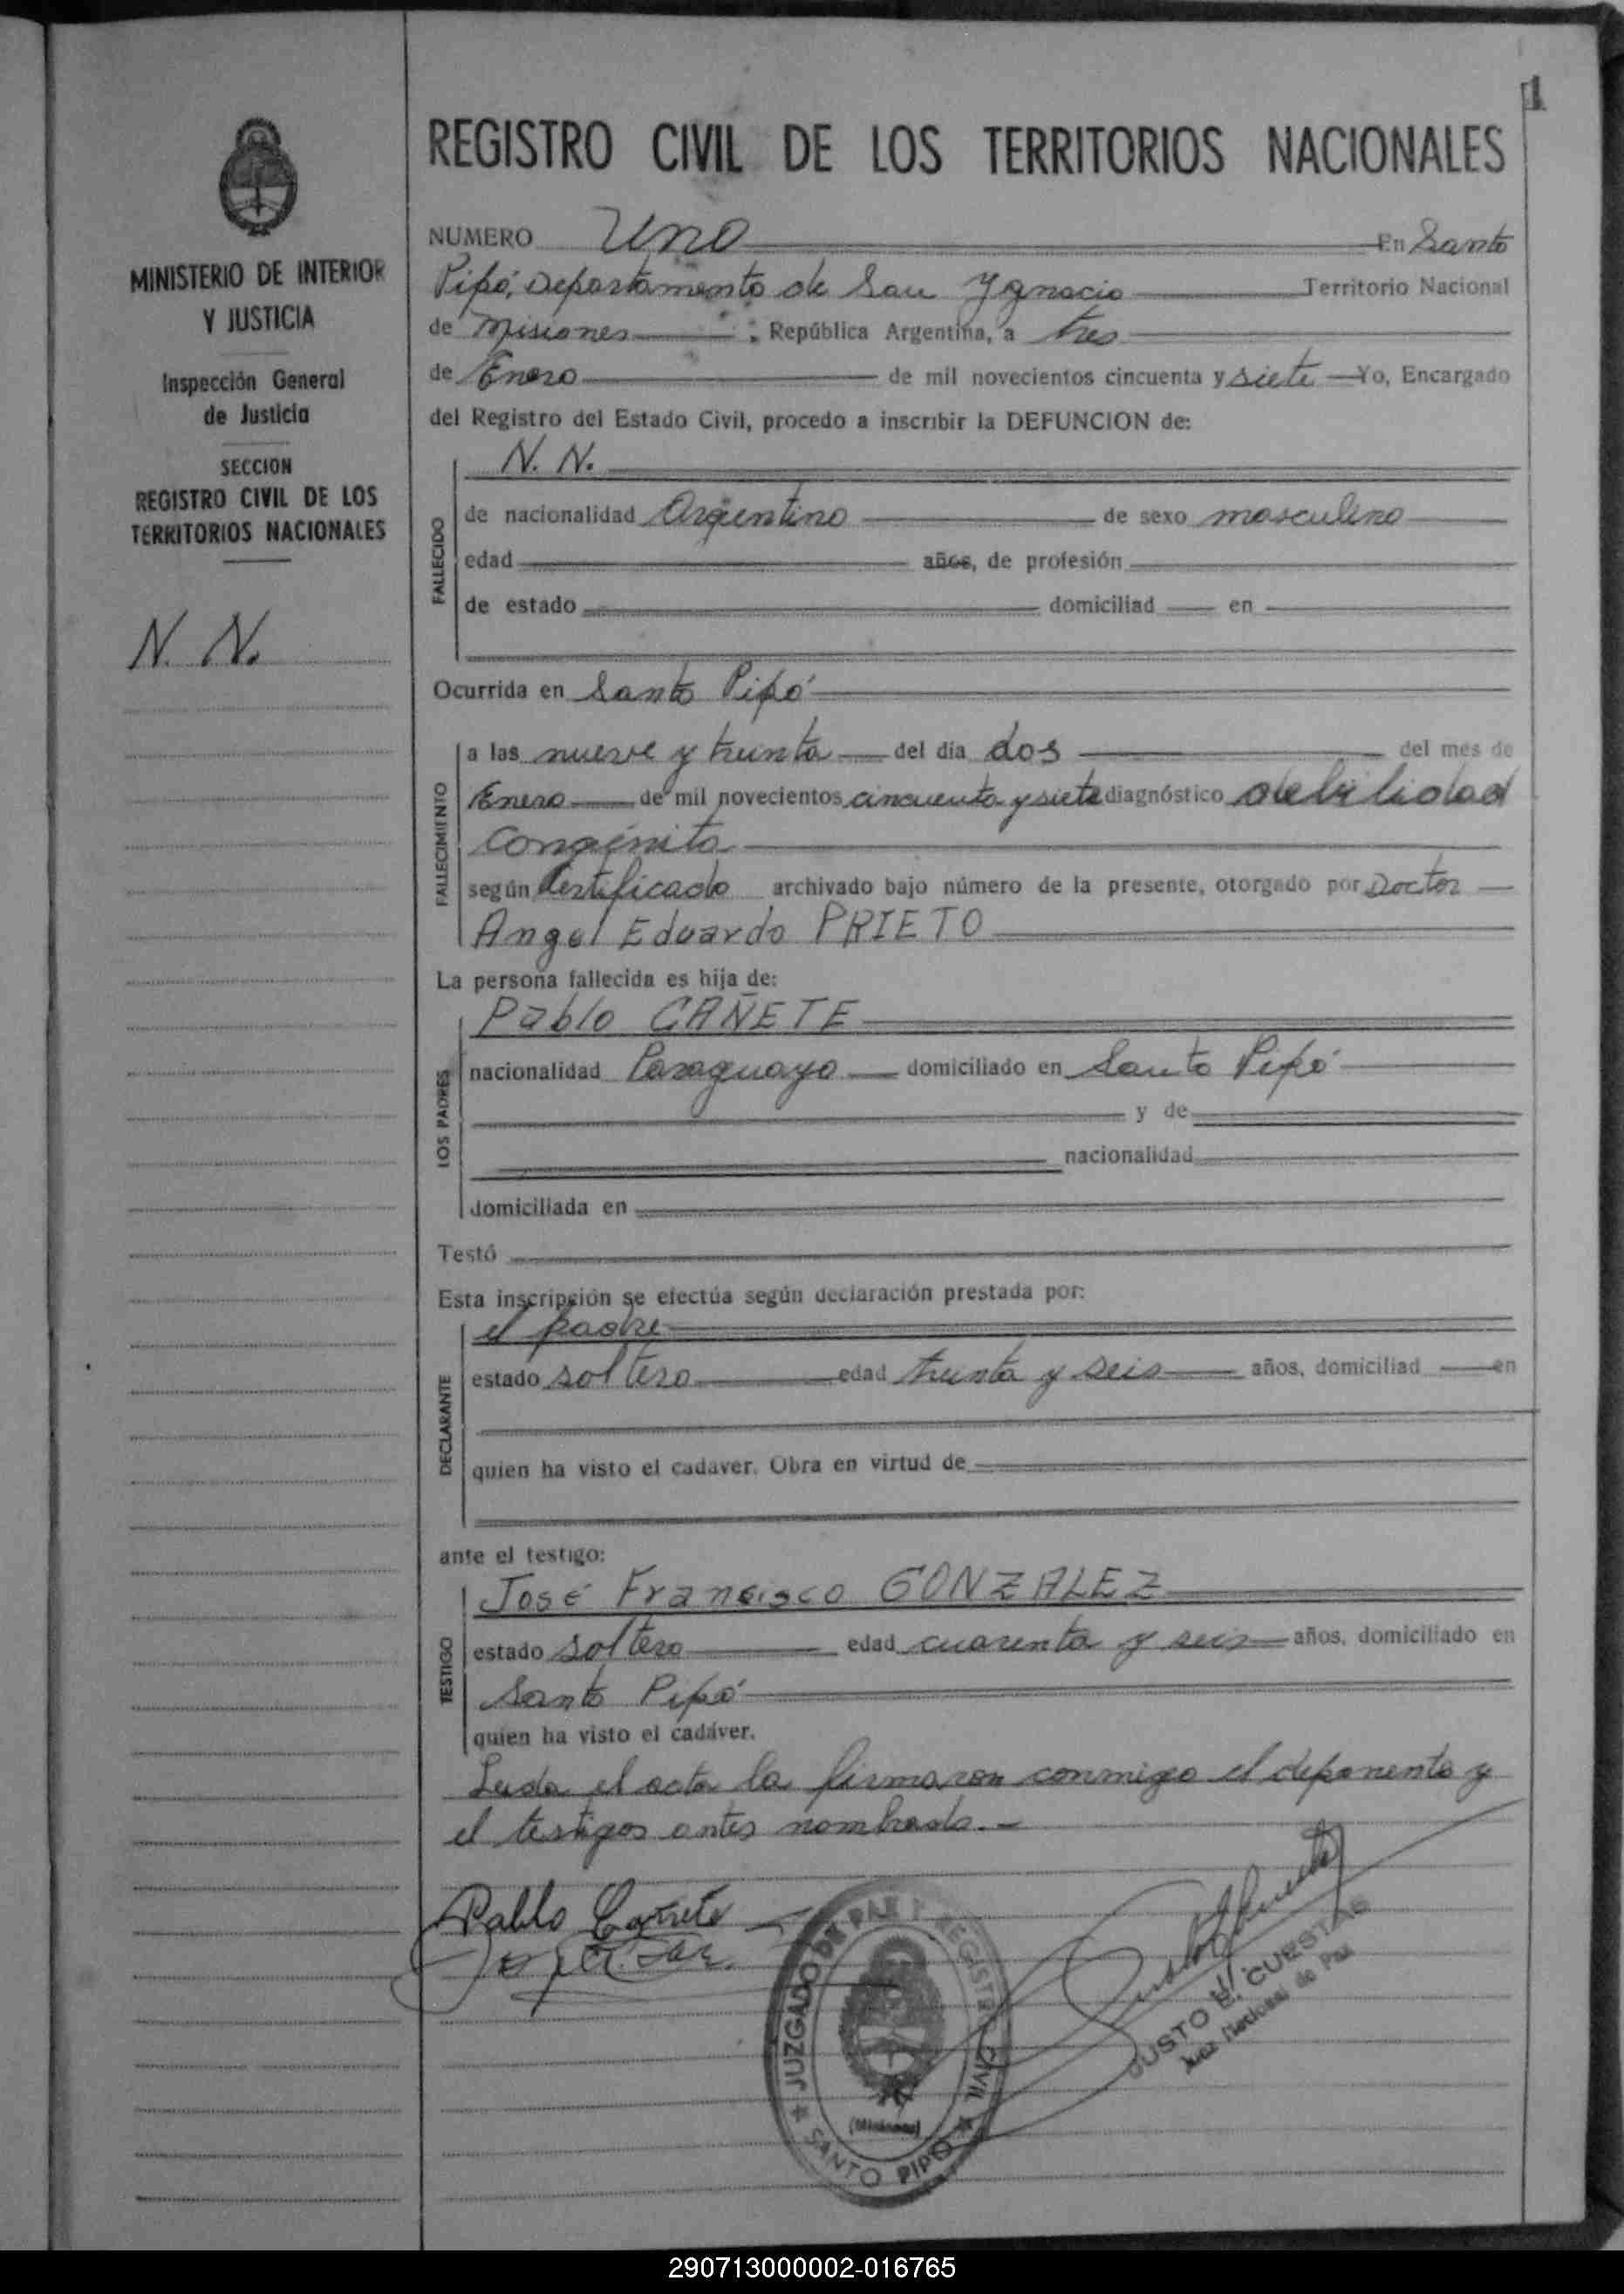 1
REGISTRO CIVIL DE LOS TERRITORIOS NACIONALES
MINISTERIO DE INTERIOR
Y JUSTICIA
Inspección General
de Justicia
SECCION
REGISTRO CIVIL DE LOS
TERRITORIOS NACIONALES
N. N.
NUMERO Uno En Santo
Pipó, Departamento de San Ygnacio Territorio Nacional
de Misiones ; República Argentina, a tres
de Enero de mil novecientos cincuenta y siete Yo, Encargado
del Registro del Estado Civil, procedo a inscribir la DEFUNCION de:
FALLECIDO
N. N.
de nacionalidad Argentino de sexo masculino
edad años, de profesión
de estado domiciliad en
Ocurrida en Santo Pipó
FALLECIMIENTO
a las nueve y treinta del día dos del mes de
Enero de mil novecientos cincuenta y siete diagnóstico debilidad
congénita
según Certificado archivado bajo número de la presente, otorgado por Doctor
Angel Eduardo PRIETO
La persona fallecida es hija de:
LOS PADRES
Pablo CAÑETE
nacionalidad Paraguayo domiciliado en Santo Pipó
y de
nacionalidad
domiciliada en
Testó
Esta inscripción se efectúa según declaración prestada por:
DECLARANTE
el padre
estado soltero edad treinta y seis años, domiciliad en
quien ha visto el cadáver. Obra en virtud de
ante el testigo:
TESTIGO
José Francisco GONZALEZ
estado soltero edad cuarenta y seis años, domiciliado en
Santo Pipó
quien ha visto el cadáver.
Leida el acta la firmaron conmigo el deponente y
el testigos antes nombrado.-
Pablo Cañete
JUZGADO DE PAZ Y REGISTRO CIVIL
(Misiones)
SANTO PIPO
JUSTO E. CUESTAS
Juez Nacional de Paz
290713000002-016765